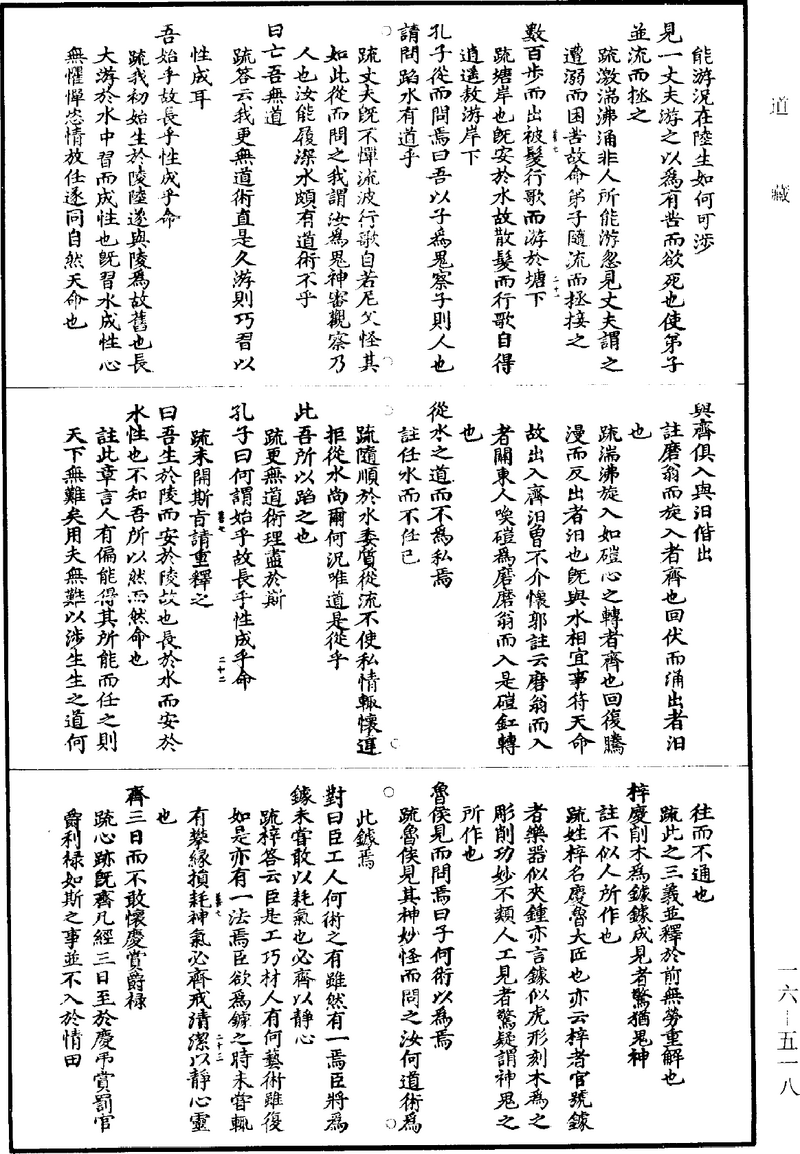 道藏
能游況在陸生如何可涉
見一丈夫游之以為有苦而欲死也使弟子
並流而拯之
疏激湍沸涌非人所能游忽見丈夫謂之
遭溺而困苦故命弟子隨流而拯接之
數百步而出被髮行歌而游於塘下
疏塘岸也既安於水故散髮而行歌自得
逍遥敖游岸下
孔子從而問焉曰吾以子為鬼察子則人也
請問蹈水有道乎
疏丈夫既不憚流波行歌自若尼父怪其
如此從而問之我謂汝為鬼神審觀察乃
人也汝能履深水頗有道術不乎
曰亡吾無道
疏答云我更無道術直是久游則巧習以
性成耳
吾始乎故長乎性成乎命
疏我初始生於陵陸遂與陵為故舊也長
大游於水中習而成性也既習水成性心
無懼憚恣情放任遂同自然天命也
與齊俱入與汩偕出
註磨翁而旋入者齊也回伏而涌出者汩
也
疏湍沸旋入如磑心之轉者齊也回復騰
漫而反出者汩也既與水相宜事符天命
故出入齊汩曾不介懷郭註云磨翁而入
者關東人喚磑為磨磨翁而入是磑釭轉
也
從水之道而不為私焉
註任水而不任已
疏隨順於水委質從流不使私情輒懷違
拒從水尚爾何況唯道是從乎
此吾所以蹈之也
疏更無道術理盡於斯
孔子曰何謂始乎故長乎性成乎命
疏未開斯旨請重釋之
曰吾生於陵而安於陵故也長於水而安於
水性也不知吾所以然而然命也
註此章言人有偏能得其所能而任之則
天下無難矣用夫無難以涉生生之道何
往而不通也
疏此之三義並釋於前無勞重解也
梓慶削木為鐻鐻成見者驚猶鬼神
註不似人所作也
疏姓梓名慶魯大匠也亦云梓者官號鐻
者樂器似夾鍾亦言鐻似虎形刻木為之
彫削功妙不類人工見者驚疑謂神鬼之
所作也
魯侯見而問焉曰子何術以為焉
疏魯侯見其神妙怪而問之汝何道術為
此鐻焉
對曰臣工人何術之有雖然有一焉臣將為
鐻未嘗敢以耗氣也必齊以靜心
疏梓答云臣是工巧材人有何藝術雖復
如是亦有一法焉臣欲為鐻之時未嘗輒
有攀緣損耗神氣必齊戒清潔以靜心靈
也
齊三日而不敢懷慶賞爵祿
疏心跡既齊凡經三日至於慶弔賞罰官
爵利祿如斯之事並不入於情田
一六—五一八